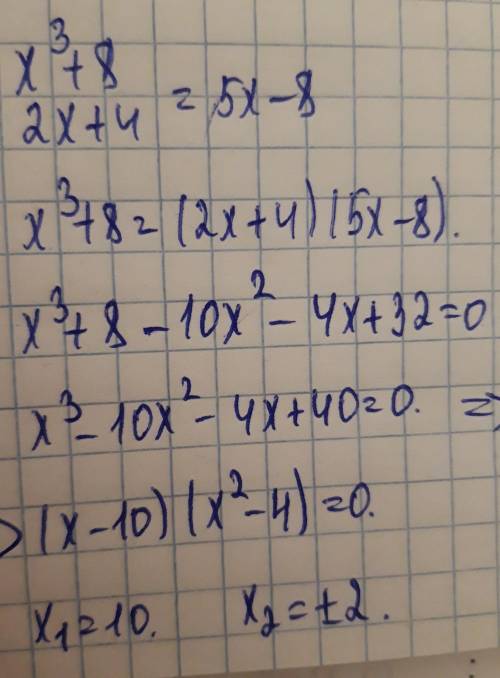 x³+8
2x+4 = 5x-8
x³+8=(2x+4)(5x-8).
x³+8-10x²-4x+32=0
x³-10x²-4x+40=0. =>
>(x-10)(x²-4)=0.
x₁=10. x₂=±2.